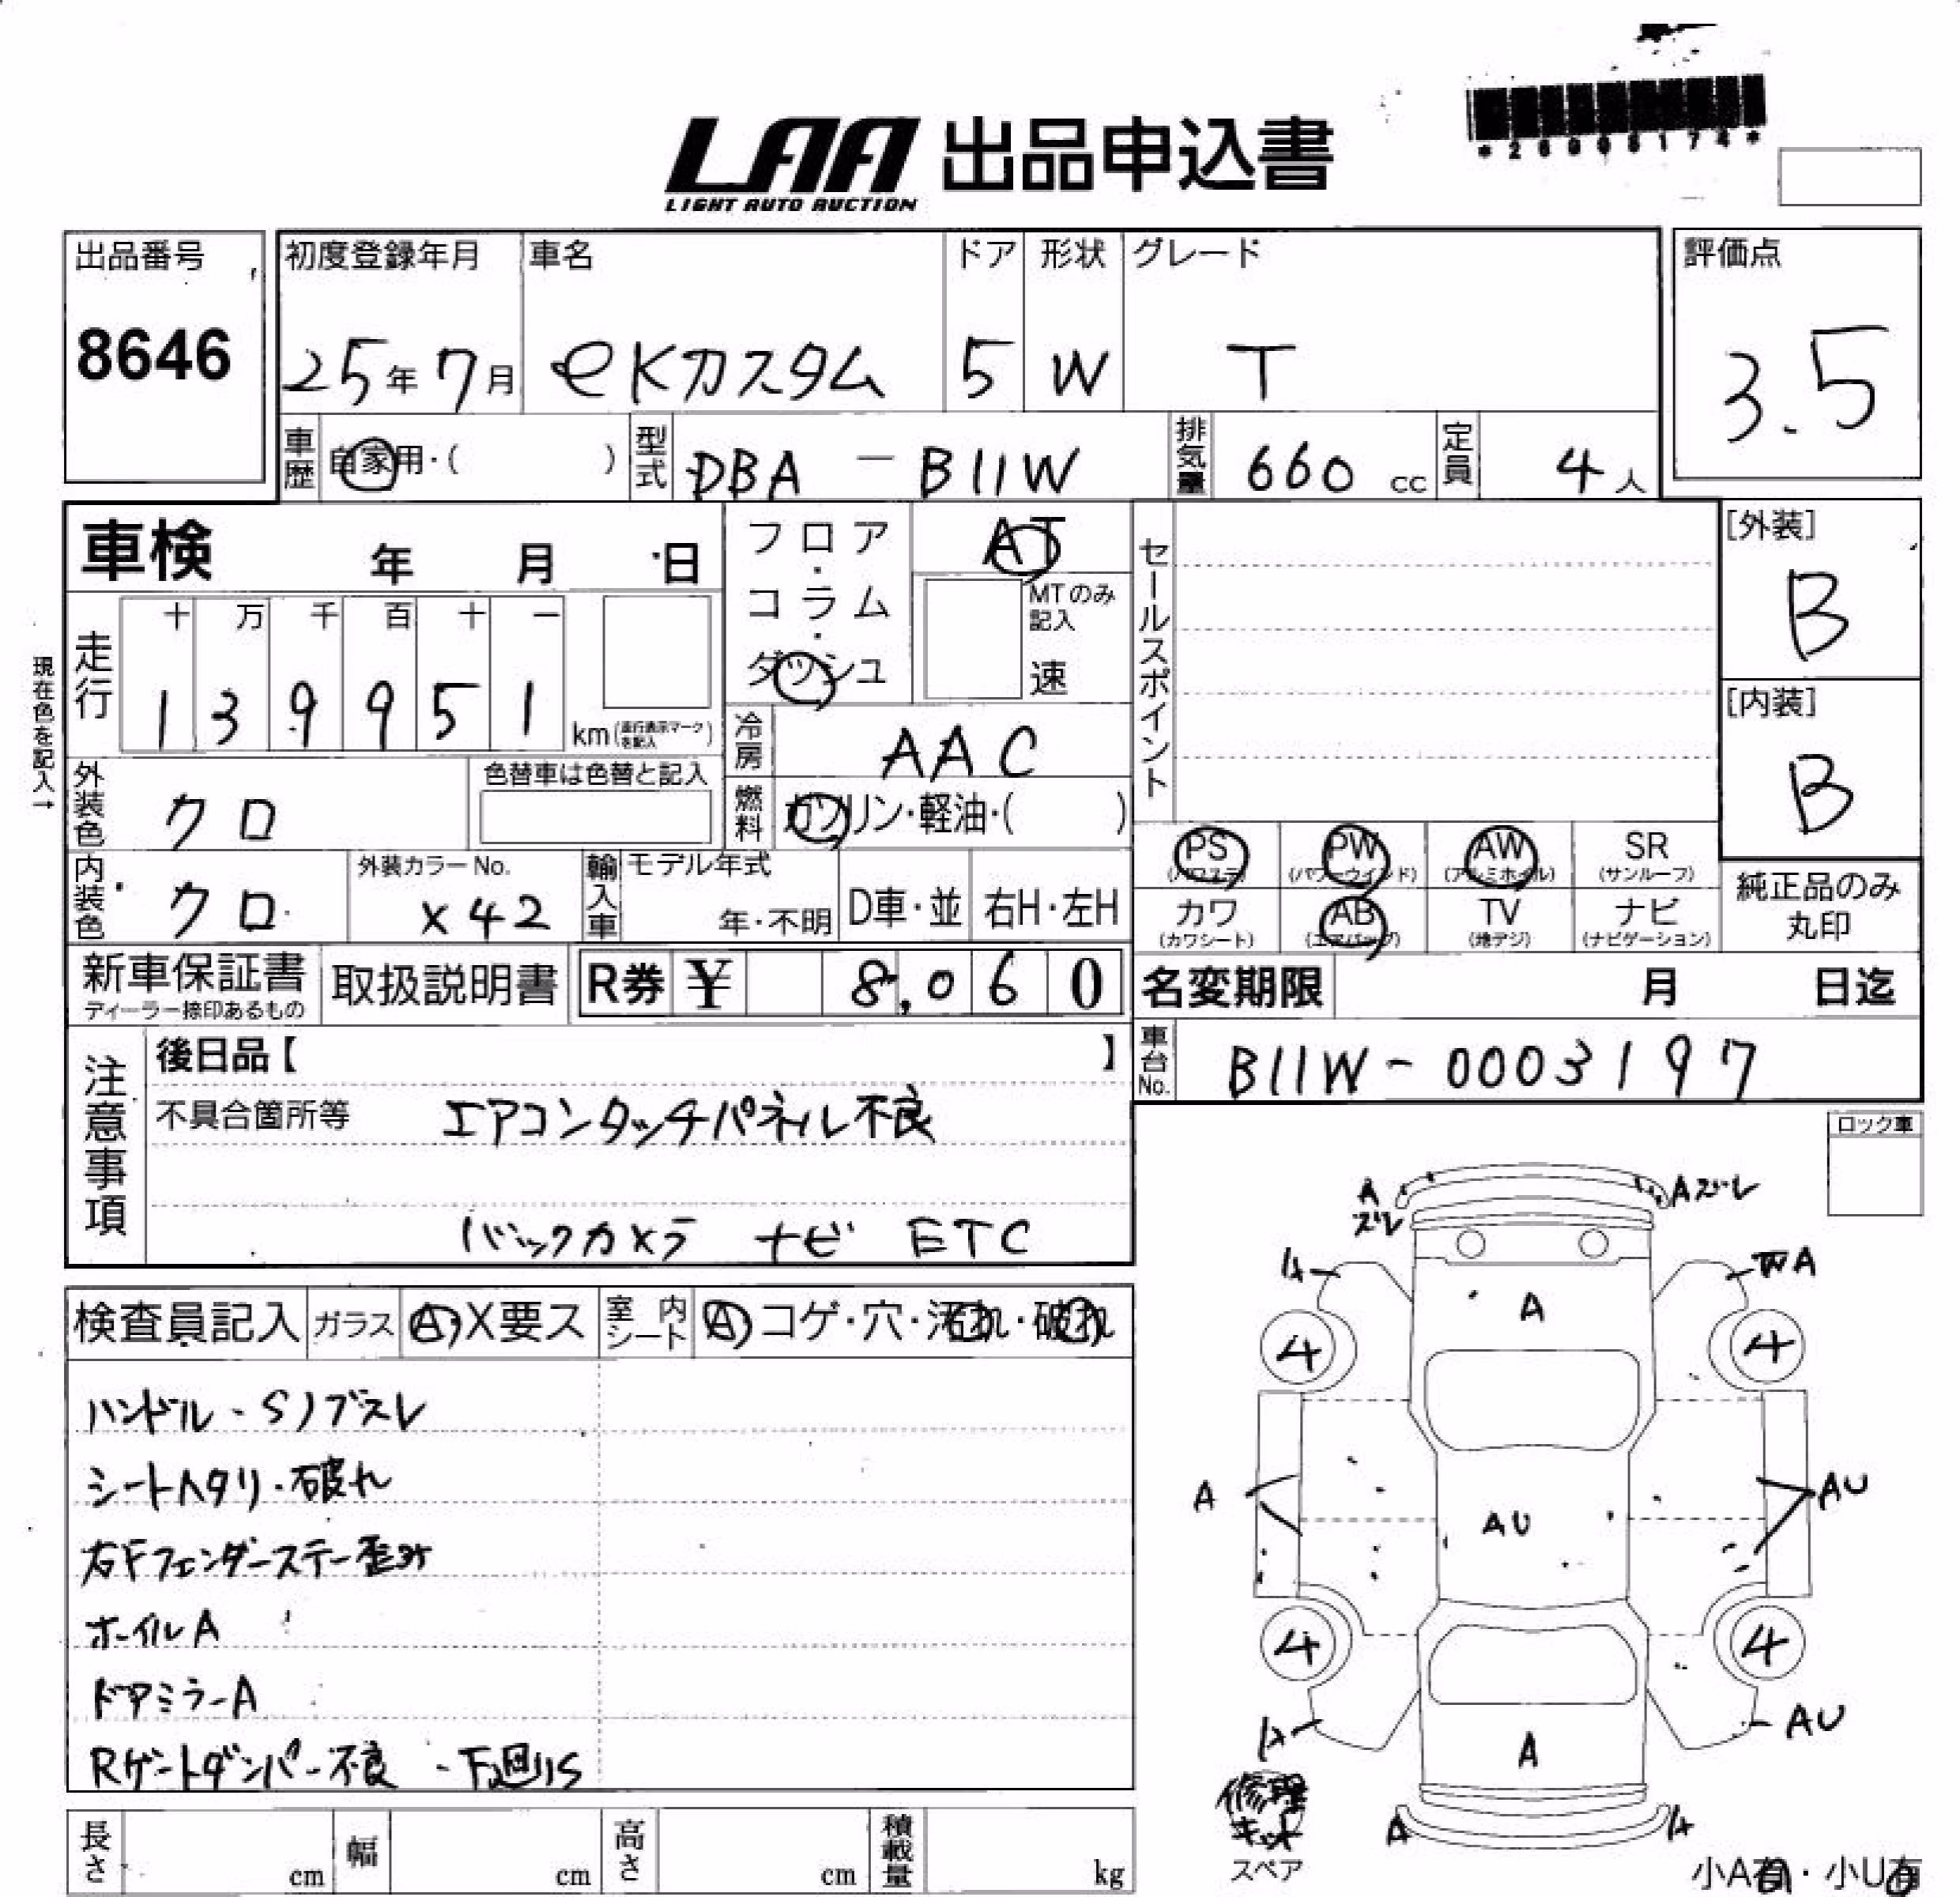 *26908174*
LAA 出品申込書
LIGHT AUTO AUCTION
出品番号
8646
初度登録年月
25年7月
車名
eKカスタム
ドア
5
形状
W
グレード
T
評価点
3.5
車歴
自家用・( )
型式
DBA - B11W
排気量
660 cc
定員
4人
車検 年 月 日
フロア・コラム・ダッシュ
AT
MTのみ記入
速
セールスポイント
[外装]
B
[内装]
B
現在色を記入→
走行
十 万 千 百 十 一
1 3 9 9 5 1
km(走行表示マークを記入)
冷房
AAC
外装色
クロ
色替車は色替と記入
燃料
ガソリン・軽油・( )
内装色
クロ
外装カラーNo.
X42
輸入車
モデル年式
年・不明
D車・並
右H・左H
PS
(パワステ)
PW
(パワーウインド)
AW
(アルミホイル)
SR
(サンルーフ)
カワ
(カワシート)
AB
(エアバッグ)
TV
(地デジ)
ナビ
(ナビゲーション)
純正品のみ
丸印
新車保証書
ディーラー捺印あるもの
取扱説明書
R券 ¥ 8,060
名変期限 月 日迄
車台No.
B11W-0003197
注意事項
後日品【 】
不具合箇所等 エアコンタッチパネル不良
バックカメラ ナビ ETC
ロック車
検査員記入
ガラス
A・X要ス
室内シート
A・コゲ・穴・汚れ・破れ
ハンドル・Sノブスレ
シートヘタリ・破れ
右Fフェンダーステー歪み
ホイルA
ドアミラーA
Rゲートダンパー不良 ・下廻りS
A ズレ
Aズレ
A
A
4
4
A
AU
AU
4
4
AU
A
A
修理キット
スペア
小A有・小U有
長さ cm
幅 cm
高さ cm
積載量 kg